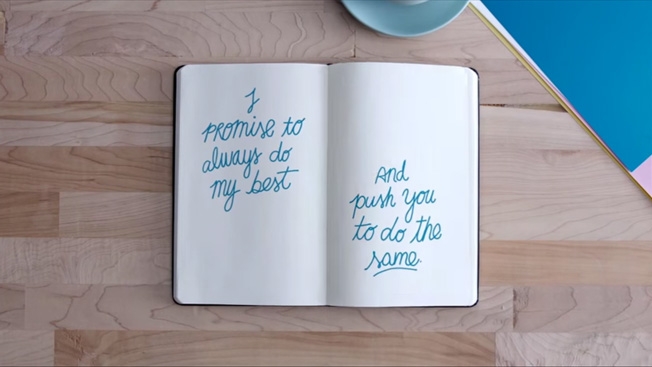 I
promise to
always do
my best
And
push you
to do the
same.